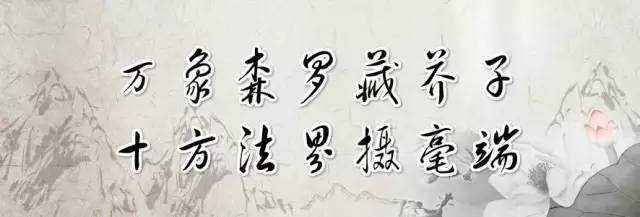 万象森罗藏芥子
十方法界摄毫端